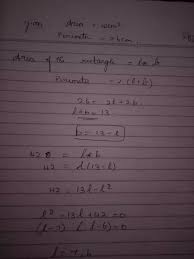 given Area = 42cm²
Perimeter = 26cm
Area of the rectangle = l × b
Perimeter = 2(l+b)
26 = 2l + 2b
l + b = 13
b = 13 - l
42 = l × b
42 = l(13-l)
42 = 13l - l²
l² = 13l + 42 = 0
(l-7) (l-6) = 0